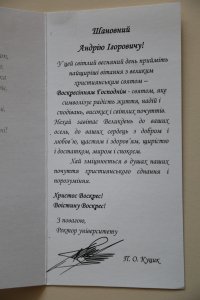 Шановний
Андрію Ігоровичу!
У цей світлий весняний день прийміть
найщиріші вітання з великим
християнським святом –
Воскресінням Господнім - святом, яке
символізує радість життя, надій і
сподівань, високих і світлих почуттів.
Нехай завітає Великдень до ваших
осель, до ваших сердець з добром і
любов'ю, щастям і здоров'ям, щирістю
і достатком, миром і спокоєм.
Хай зміцнюється в душах наших
почуття християнського єднання і
порозуміння.
Христос Воскрес!
Воістину Воскрес!
З повагою,
Ректор університету
П. О. Куцик